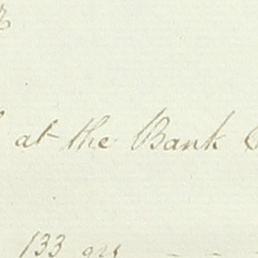 at the Bank
133 grs